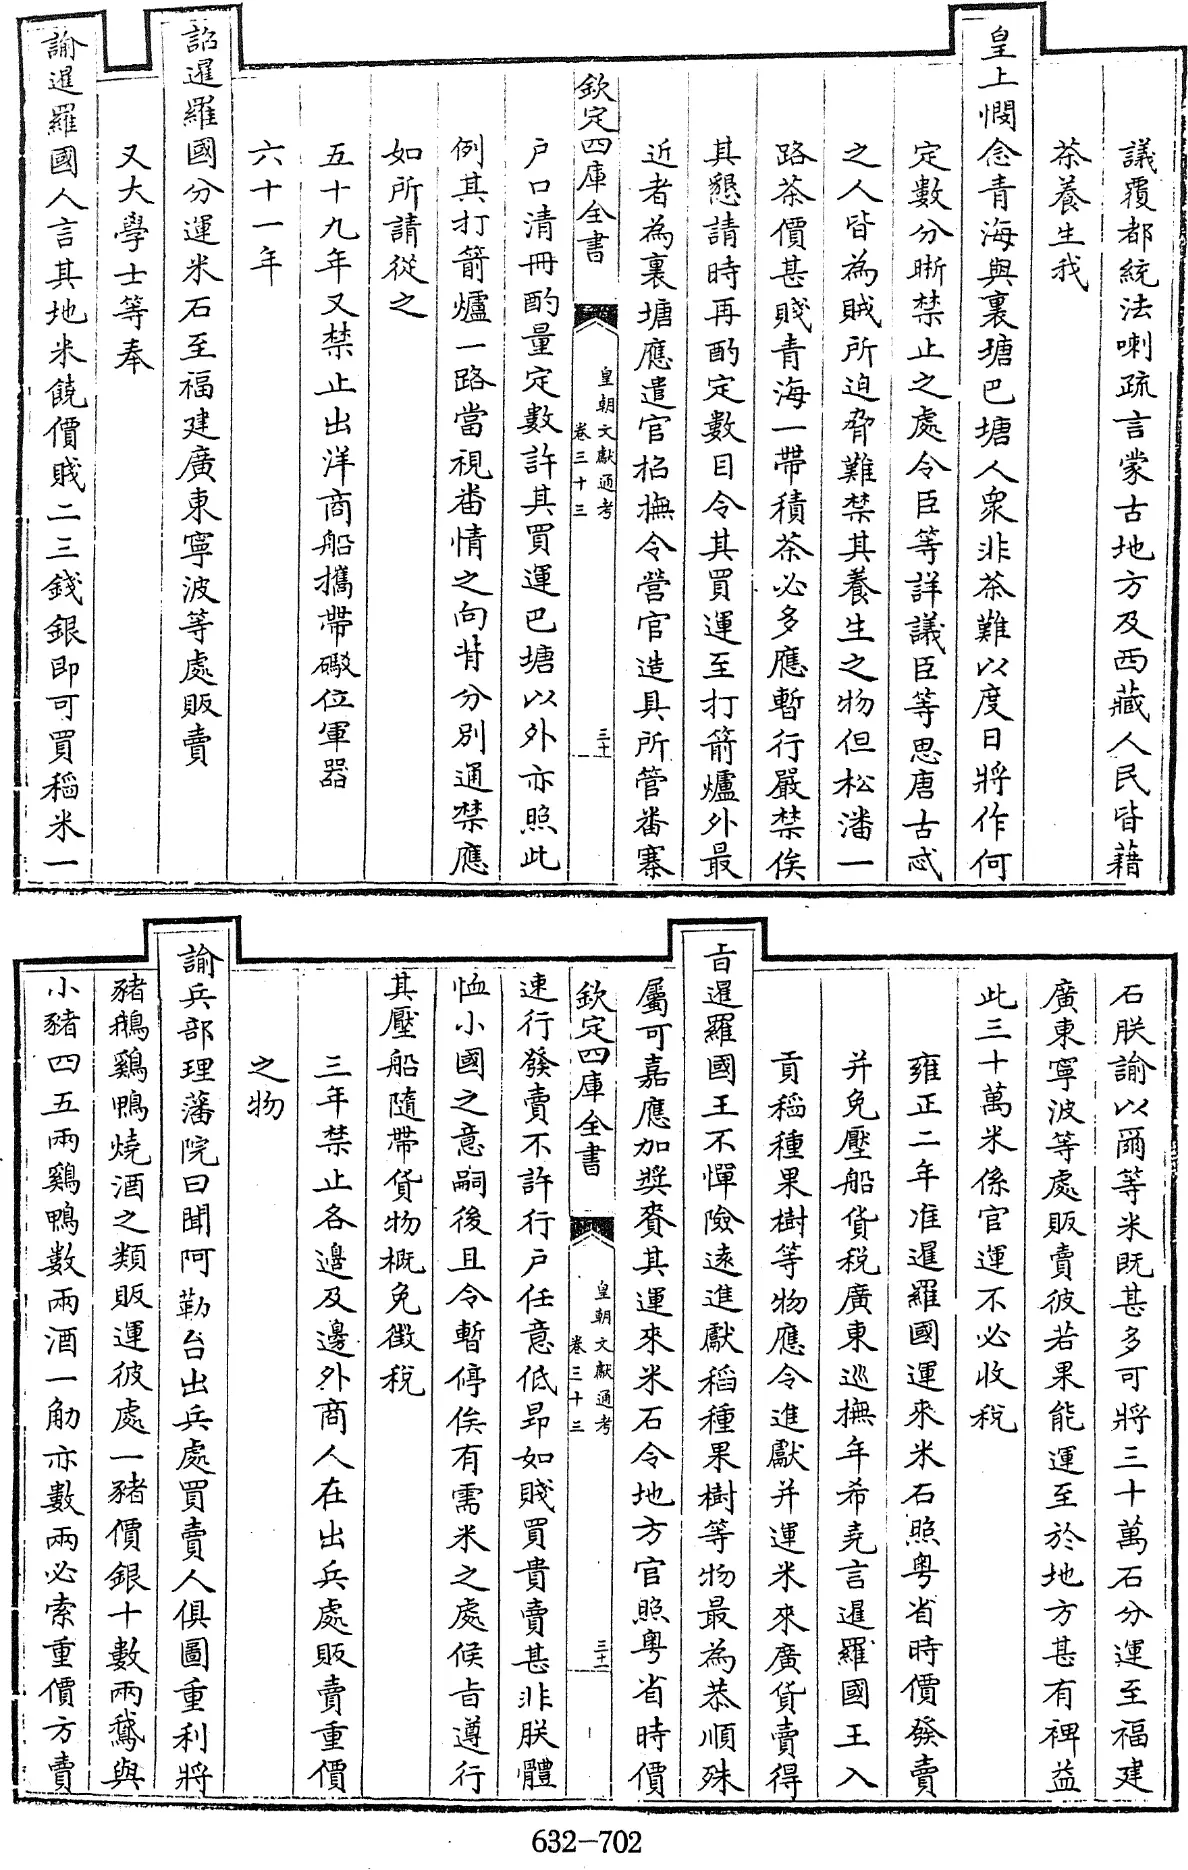 議覆都統法喇疏言蒙古地方及西藏人民皆藉
茶養生我
皇上憫念青海與裏塘巴塘人衆非茶難以度日將作何
定數分晰禁止之處令臣等詳議臣等思唐古忒
之人皆為賊所迫脅難禁其養生之物但松潘一
路茶價甚賤青海一帶積茶必多應暫行嚴禁俟
其懇請時再酌定數目令其買運至打箭爐外最
近者為裏塘應遣官招撫令營官造具所管番寨
欽定四庫全書
皇朝文獻通考
卷三十三
三十
户口清冊酌量定數許其買運巴塘以外亦照此
例其打箭爐一路當視番情之向背分別通禁應
如所請從之
五十九年又禁止出洋商船攜帶礮位軍器
六十一年
詔暹羅國分運米石至福建廣東寧波等處販賣
又大學士等奉
諭暹羅國人言其地米饒價賤二三錢銀即可買稻米一
石朕諭以爾等米既甚多可將三十萬石分運至福建
廣東寧波等處販賣彼若果能運至於地方甚有裨益
此三十萬米係官運不必收稅
雍正二年准暹羅國運來米石照粤省時價發賣
并免壓船貨稅廣東巡撫年希堯言暹羅國王入
貢稻種果樹等物應令進獻并運米來廣貨賣得
旨暹羅國王不憚險遠進獻稻種果樹等物最為恭順殊
屬可嘉應加獎賚其運來米石令地方官照粤省時價
欽定四庫全書
皇朝文獻通考
卷三十三
三十一
速行發賣不許行户任意低昂如賤買貴賣甚非朕體
恤小國之意嗣後且令暫停俟有需米之處候旨遵行
其壓船隨帶貨物概免徵稅
三年禁止各邊及邊外商人在出兵處販賣重價
之物
諭兵部理藩院曰聞阿勒台出兵處買賣人俱圖重利將
豬鵝鷄鴨燒酒之類販運彼處一豬價銀十數兩鵞與
小豬四五兩鷄鴨數兩酒一觔亦數兩必索重價方賣
632-702